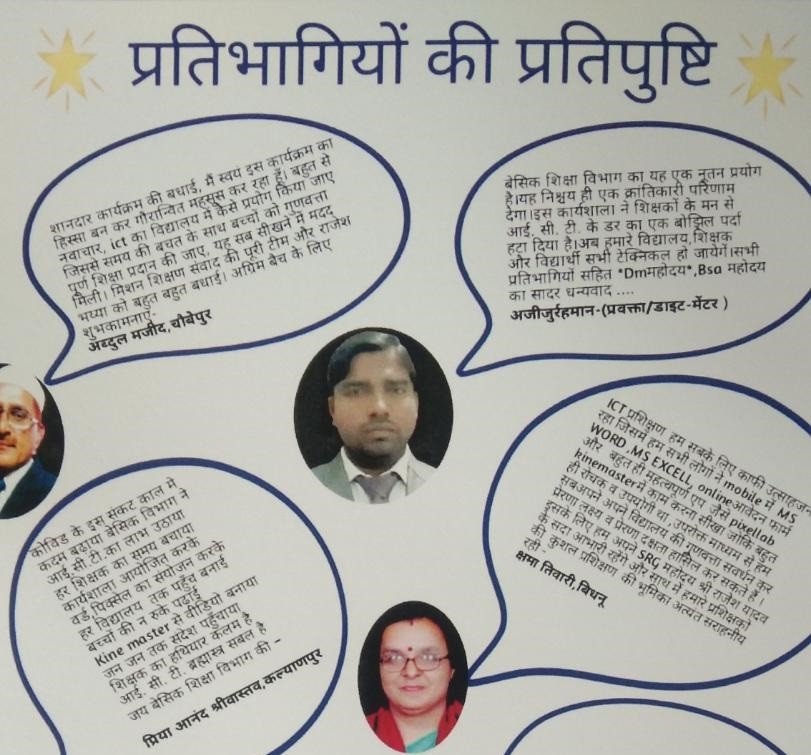 प्रतिभागियों की प्रतिपुष्टि
शानदार कार्यक्रम की बधाई, मैं स्वयं इस कार्यक्रम का
हिस्सा बन कर गौरान्वित महसूस कर रहा हूँ। बहुत से
नवाचार, ict का विद्यालय में कैसे प्रयोग किया जाए
जिससे समय की बचत के साथ बच्चों को गुणवत्ता
पूर्ण शिक्षा प्रदान की जाए, यह सब सीखने में मदद
मिली। मिशन शिक्षण संवाद की पूरी टीम और राजेश
भय्या को बहुत बहुत बधाई। अग्रिम बैच के लिए
शुभकामनाएं-
अब्दुल मजीद,चौबेपुर
बेसिक शिक्षा विभाग का यह एक नूतन प्रयोग
है।यह निश्चय ही एक क्रांतिकारी परिणाम
देगा।इस कार्यशाला ने शिक्षकों के मन से
आई. सी. टी. के डर का एक बोझिल पर्दा
हटा दिया है।अब हमारे विद्यालय,शिक्षक
और विद्यार्थी सभी टेक्निकल हो जायेंगे।सभी
प्रतिभागियों सहित *Dmमहोदय*,Bsa महोदय
का सादर धन्यवाद ....
अजीजुर्रहमान-(प्रवक्ता/डाइट-मेंटर )
कोविड के इस संकट काल में,
कदम बढ़ाया बेसिक विभाग ने
आई.सी.टी.का लाभ उठाया
हर शिक्षक का समय बचाया
कार्यशाला आयोजित करके
वर्ड पिक्सेल का संयोजन करके
हर विद्यालय तक पहुँच बनाई
बच्चों की न रुके पढ़ाई
Kine master से वीडियो बनाया
जन जन तक संदेश पहुँचाया
शिक्षक का हथियार कलम है
आई. सी. टी. ब्रह्मास्त्र सबल है
जय बेसिक शिक्षा विभाग की –
प्रिया आनंद श्रीवास्तव,कल्याणपुर
ICT प्रशिक्षण हम सबके लिए काफी उत्साहजन
रहा जिसमें हम सभी लोगों ने mobile में MS
WORD ,MS EXCELL, onlineआवेदन फार्म
और बहुत ही महत्वपूर्ण एप जैसे pixellab
kinemasterमें काम करना सीखा जोकि बहुत
ही रोचक व उपयोगी था, उपरोक्त माध्यम से हम
सबअपने अपने विद्यालय की गुणवत्ता संवर्धन कर
प्रेरणा लक्ष्य व प्रेरणा दक्षता हासिल कर सकते हैं ।
इसके लिए हम अपने SRG महोदय श्री राजेश यादव
के सदा आभारी रहेंगे और साथ में हमारे प्रशिक्षको
की कुशल प्रशिक्षण की भूमिका अत्यंत सराहनीय
रही -
क्षमा तिवारी,बिधनू